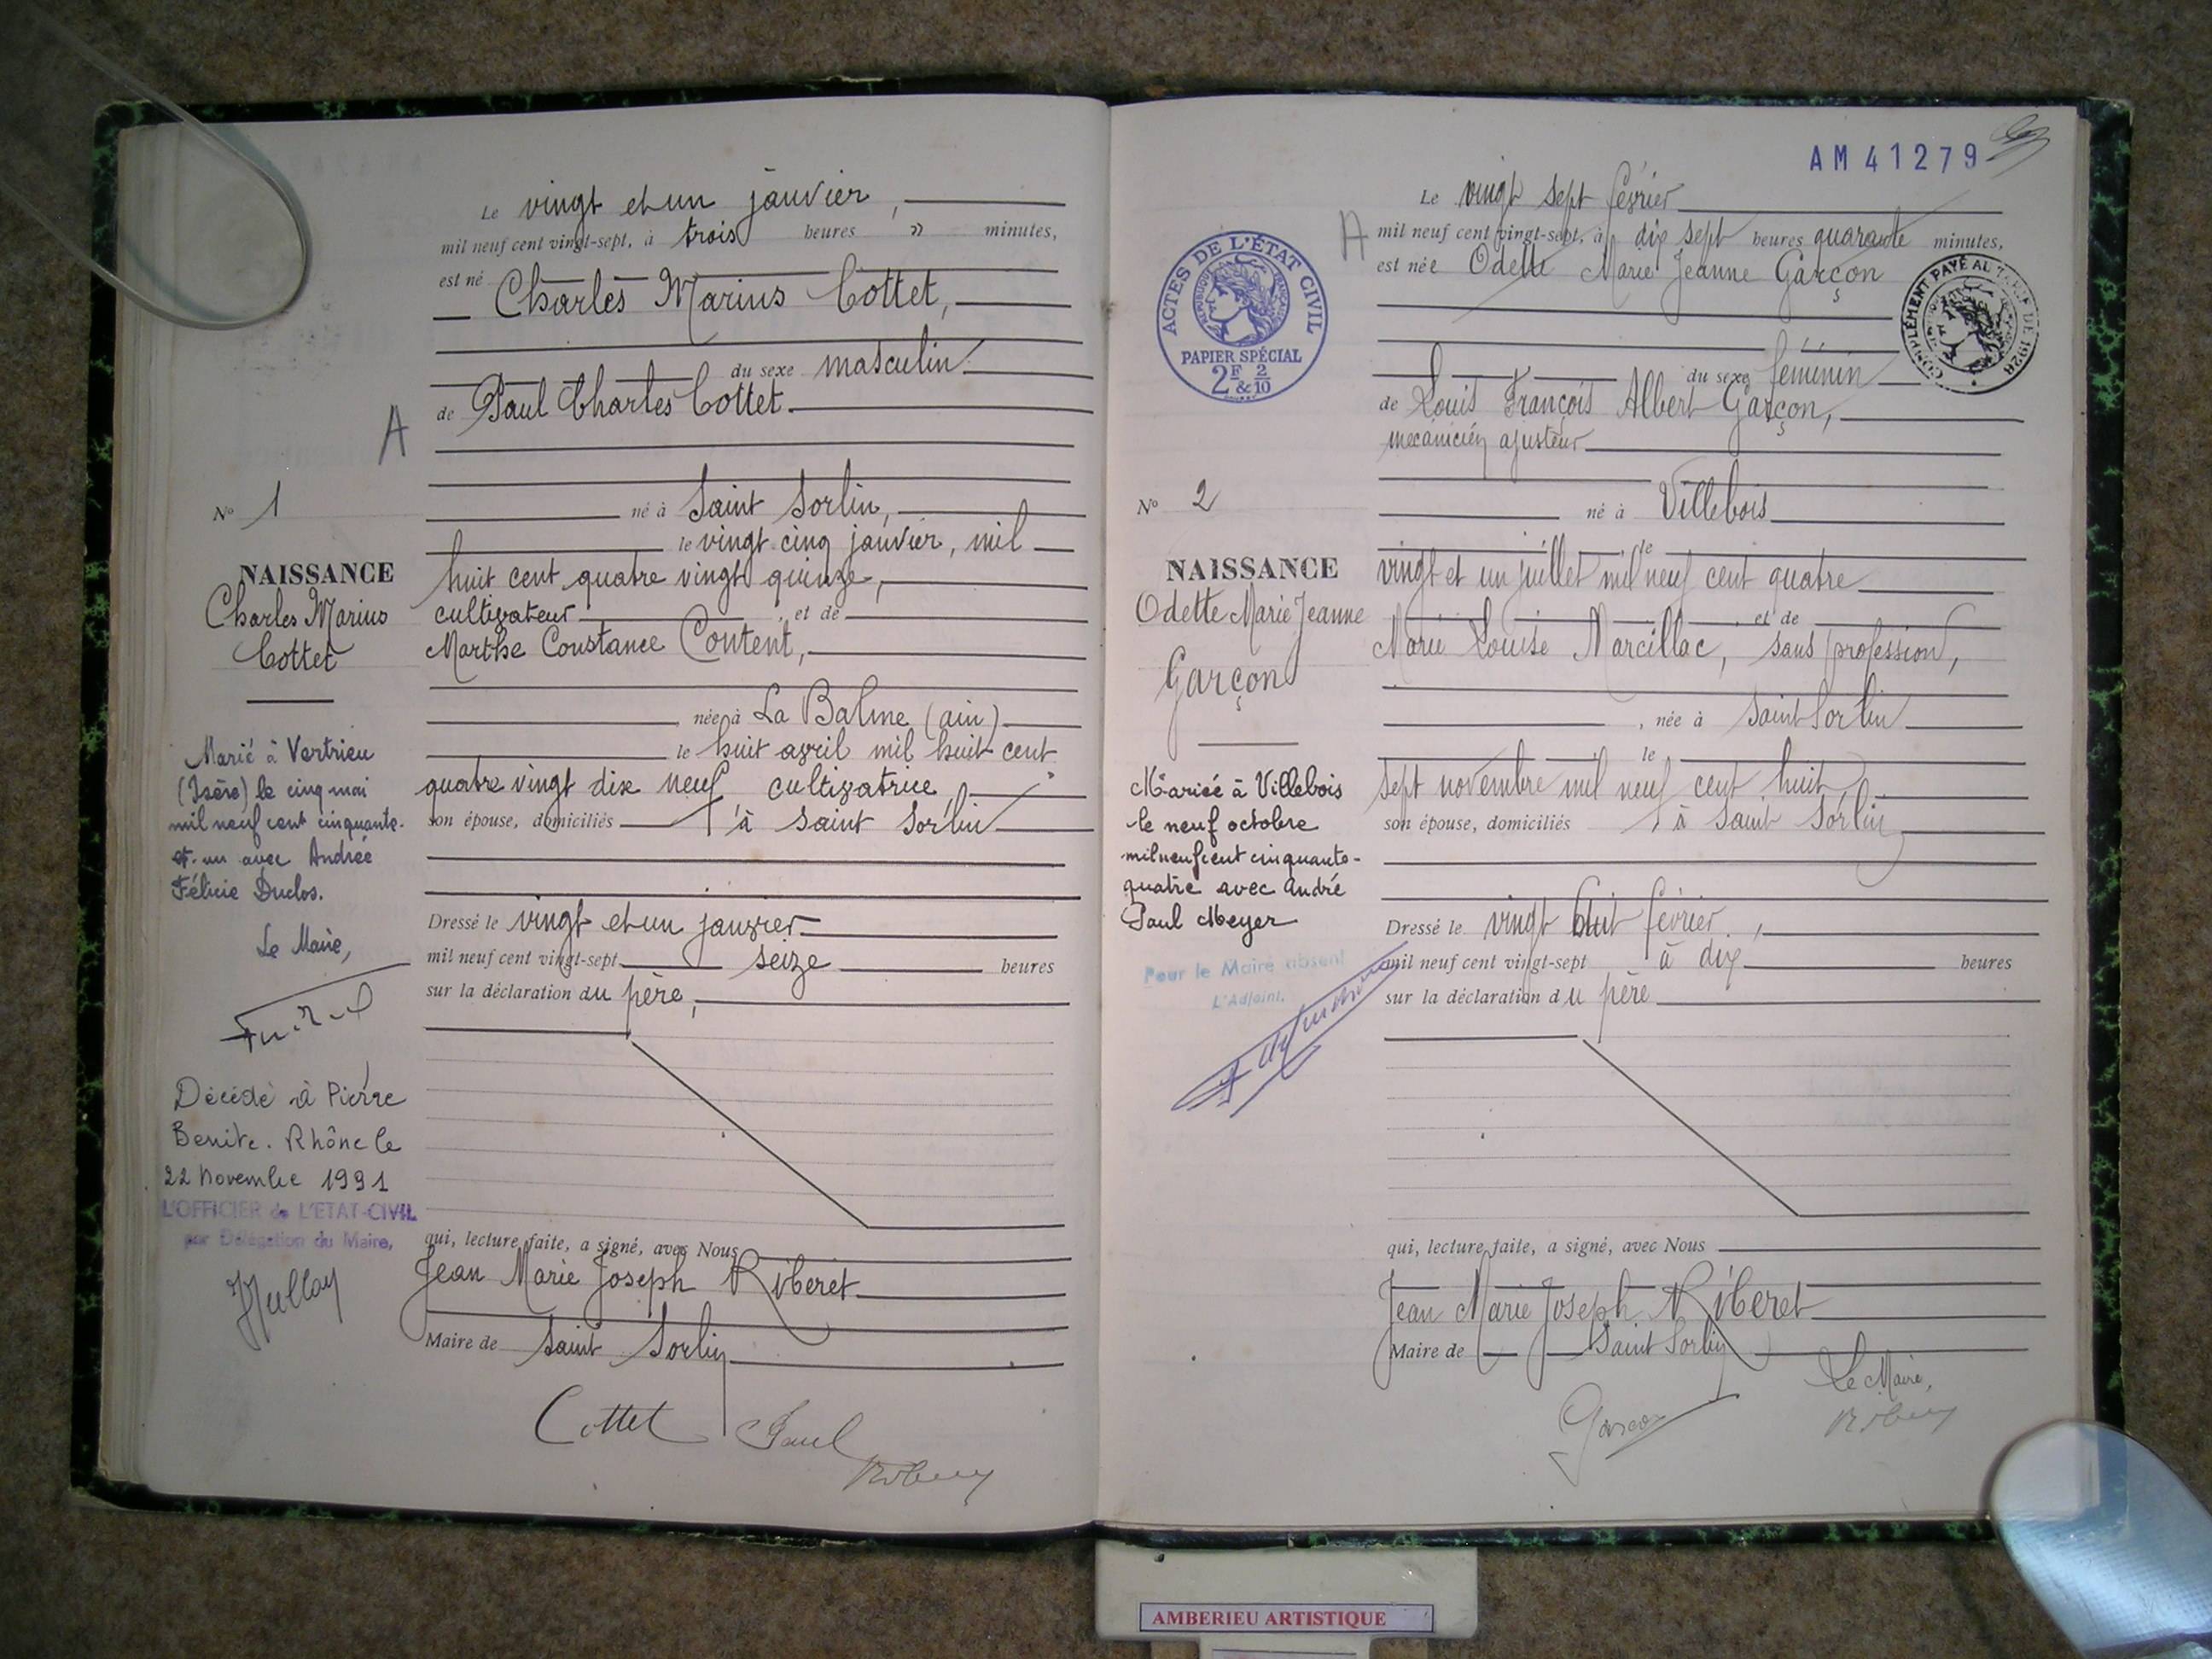 Le vingt et un janvier,
mil neuf cent vingt-sept, à trois heures " minutes,
est né
Charles Marius Cottet,
du sexe masculin
de Paul Charles Cottet
A
né à Saint Sorlin,
le vingt cinq janvier, mil
huit cent quatre vingt quinze,
cultivateur et de
Marthe Constance Content,
née à La Balme (ain)
le huit avril mil huit cent
quatre vingt dix neuf cultivatrice,
son épouse, domiciliés à Saint Sorlin
Dressé le vingt et un janvier
mil neuf cent vingt-sept seize heures
sur la déclaration du père,
qui, lecture faite, a signé, avec Nous
Jean Marie Joseph Riberet
Maire de Saint Sorlin
Cottet Paul
N° 1
NAISSANCE
Charles Marius
Cottet
Marié à Vertrieu
(Isère) le cinq mai
mil neuf cent cinquante-
et-un avec Andrée
Félicie Duclos.
Le Maire,
Décédé à Pierre
Benite. Rhône le
22 Novembre 1991
L'OFFICIER de L'ETAT-CIVIL
par Délégation du Maire,
AM 41279
Le vingt sept février
A
mil neuf cent vingt-sept, à dix sept heures quarante minutes,
est née Odette Marie Jeanne Garçon
du sexe féminin
de Louis François Albert Garçon,
mécanicien ajusteur
né à Villebois
le
vingt et un juillet mil neuf cent quatre
et de
Marie Louise Marcillac, sans profession,
, née à Saint Sorlin
le
sept novembre mil neuf cent huit,
son épouse, domiciliés à Saint Sorlin
Dressé le vingt huit février,
mil neuf cent vingt-sept à dix heures
sur la déclaration du père
qui, lecture faite, a signé, avec Nous
Jean Marie Joseph Riberet
Maire de Saint Sorlin
Le Maire,
Garçon
ACTES DE L'ÉTAT CIVIL
RÉPUBLIQUE FRANÇAISE
PAPIER SPÉCIAL
2F & 2/10
COMPLÉMENT PAYÉ AU TARIF DE 1926
N° 2
NAISSANCE
Odette Marie Jeanne
Garçon
Mariée à Villebois
le neuf octobre
mil neuf cent cinquante-
quatre avec André
Paul Meyer
Pour le Maire absent
L'Adjoint,
AMBERIEU ARTISTIQUE